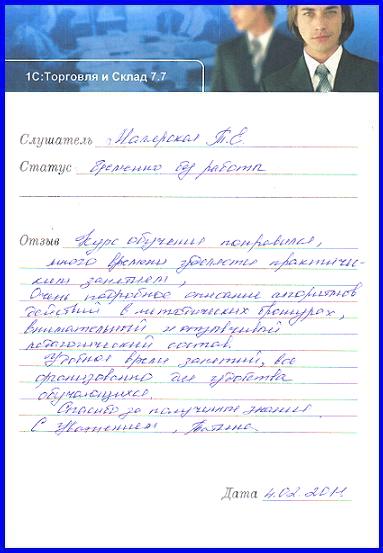 1С:Торговля и Склад 7.7
Слушатель Т.Е.
Статус Временно без работы
Отзыв Курс обучения понравился,
много времени уделяется практичес-
ким занятием,
Очень подробное описание алгоритмов
действий в методических брошюрах,
внимательный и отзывчивый
педагогический состав.
Удобное время занятий, все
организованно для удобства
обучающихся.
Спасибо за полученные знания.
С Уважением, Татьяна.
Дата 4.02.2011